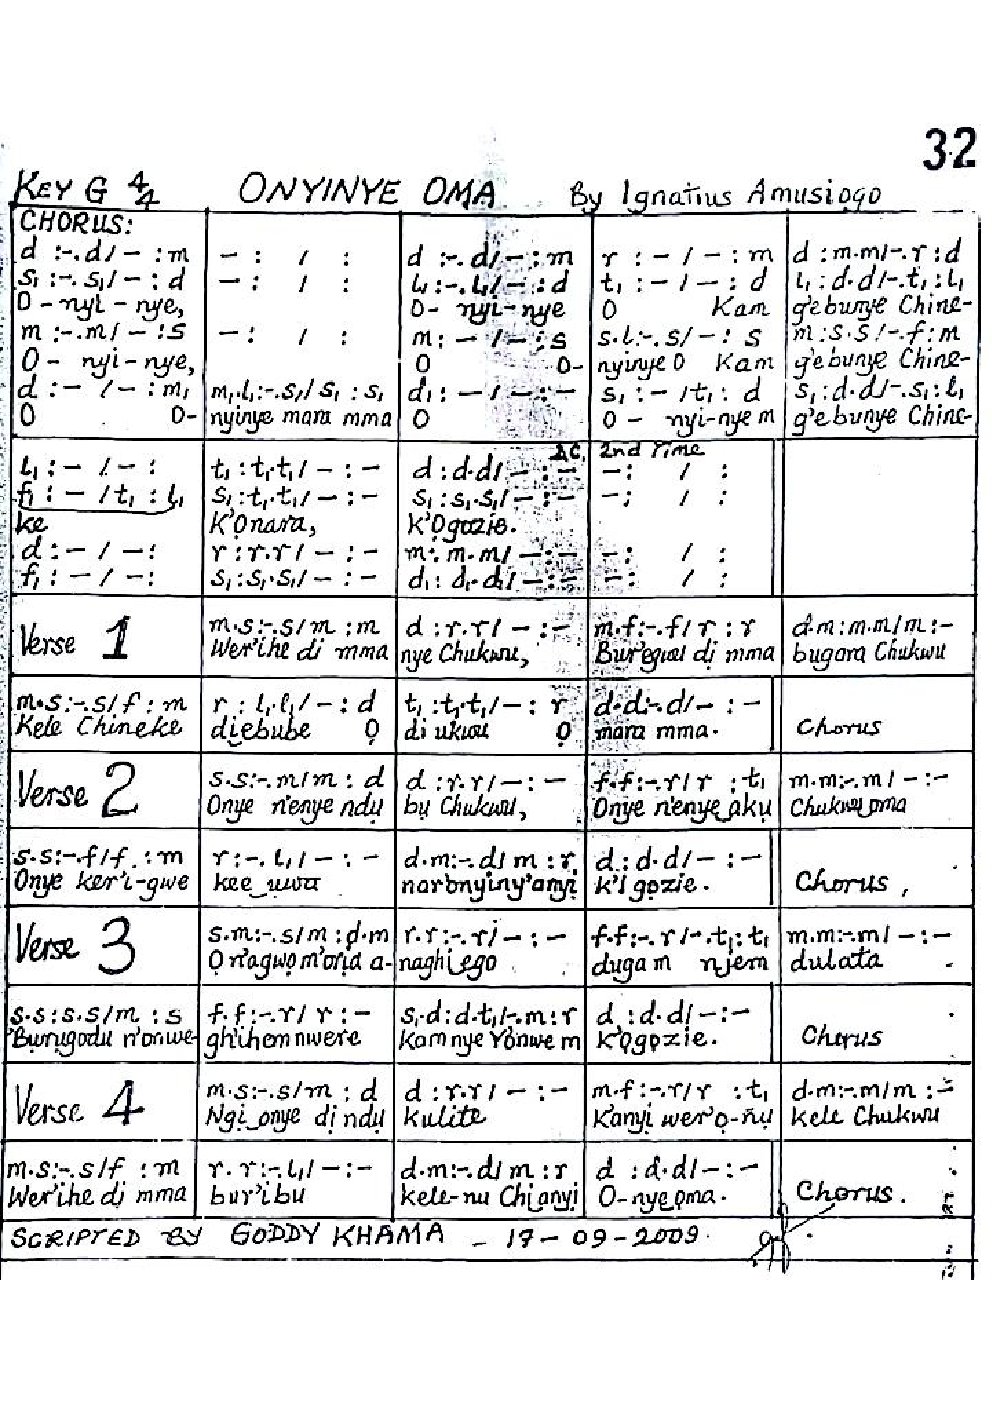 32
KEY G 4/4 ONYINYE OMA By Ignatius Amusiogo
CHORUS:
d :-.d/- :m - : / : d :-.d/- :m r : - / - : m d :m.m/-.r :d
s₁ :-.s₁/- : d - : / : l₁ :-.l₁/- : d t₁ : - / - : d l₁ :d.d/-.t₁ :l₁
O - nyi - nye, O - nyi-nye O Kam g'ebunye Chine-
m :-.m/ - :s - : / : m : - / - : s s.l:-.s/- : s m :s.s/-.f :m
O - nyi-nye, O O- nyinye O Kam g'ebunye Chine-
d : - / - : m₁ m₁.l₁:-.s₁/s₁ : s₁ d₁ : - / - : - s₁ : - /t₁ : d s₁ :d.d/-.s₁ :l₁
O O- nyinye mara mma O O - nyi-nye m g'ebunye Chine-
D.C. 2nd Time
l₁ : - / - : t₁ : t₁.t₁/ - : - d : d.d/ - : - - : / :
f₁ : - /t₁ : l₁ s₁ : t₁.t₁/ - : - s₁ : s₁.s₁/ - : - - : / :
ke K'Onara, K'Ogozie.
d : - / - : r : r.r/ - : - m : m.m/ - : - - : / :
f₁ : - / - : s₁ : s₁.s₁/ - : - d₁ : d₁.d₁/ - : - - : / :
Verse 1 m.s:-.s/m :m d :r.r/ - : - m.f:-.f/ r : r d.m:m.m/m :-
Wer'ihe di mma nye Chukwu, Bur'egwu dị mma bugara Chukwu
m.s:-.s/f : m r : l₁.l₁/ - : d t₁ :t₁.t₁/- : r d.d:-.d/- : -
Kele Chineke diebube Ọ di ukwu Ọ mara mma. Chorus
Verse 2 s.s:-.m/m : d d :r.r/ - : - f.f:-.r/r : t₁ m.m:-.m/ - :-
Onye n'enye ndụ bụ Chukwu, Onye n'enye akụ Chukwu oma
s.s:-.f/f : m r :-.l₁/ - : - d.m:-.d/ m : r d : d.d/ - : -
Onye ker'i-gwe kee uwa narọnyịny'anyị k'I gozie. Chorus,
Verse 3 s.m:-.s/m :d.m r.r :-.r/ - : - f.f:-.r/-.t₁:t₁ m.m:-.m/ - :-
O n'agwọ m'ọrịa a- naghi ego duga m njem dulata
s.s :s.s/m : s f.f :-.r/ r : - s₁.d:d.t₁/-.m:r d :d.d/ - :-
Bụrụgodu n'onwe- gh'ihem nwere Kam nye Y'onwe m k'Ọgọzie. Chorus
Verse 4 m.s :-.s/m : d d : r.r/ - : - m.f :-.r/r : t₁ d.m:-.m/m :-
Ngi onye dị ndụ kulite Kanyi wer'ọ-ñụ kele Chukwu
m.s:-.s/f : m r.r:-.l₁/ - : - d.m:-.d/ m : r d :d.d/ - : -
Wer'ihe di mma bur'ibu kele-nu Chi anyi O-nye oma. Chorus.
SCRIPTED BY GODDY KHAMA - 17-09-2009.